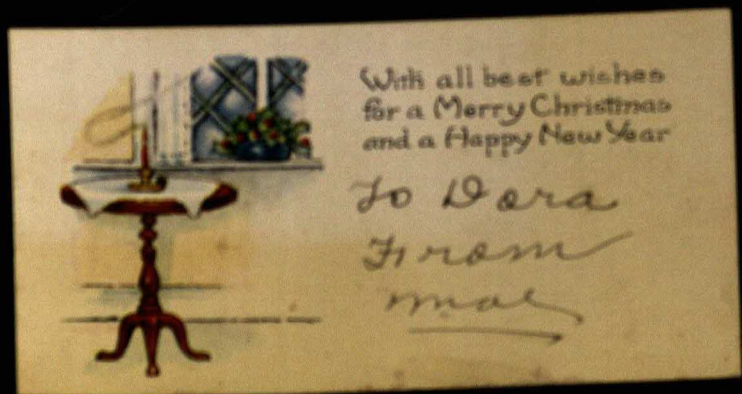 With all best wishes
for a Merry Christmas
and a Happy New Year
To Dora
From